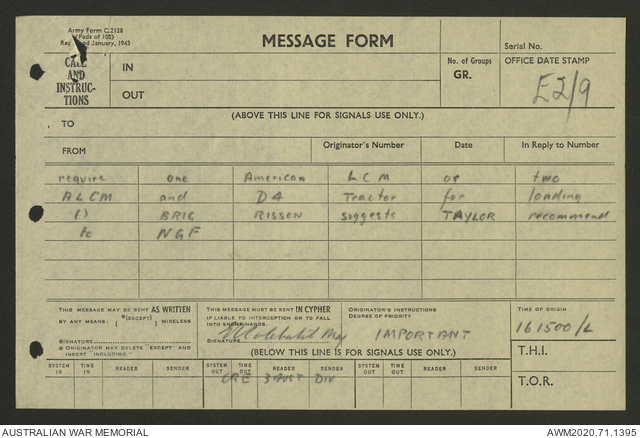 Army Form C.2128
(Pads of 100)
MESSAGE FORM
Serial No.
CALL
AND
INSTRUC-
TIONS
IN
OUT
No. of Groups
GR.
OFFICE DATE STAMP
E2/9
(ABOVE THIS LINE FOR SIGNALS USE ONLY.)
TO
FROM
Originator's Number
Date
In Reply to Number
require one American LCM or two
ALCM and D4 Tractor for loading
BRIG RISSON suggests TAYLOR recommend
to NGF
THIS MESSAGE MAY BE SENT AS WRITTEN
BY ANY MEANS. *(EXCEPT) WIRELESS
SIGNATURE
* ORIGINATOR MAY DELETE "EXCEPT" AND
INSERT "INCLUDING."
THIS MESSAGE MUST BE SENT IN CYPHER
IF LIABLE TO INTERCEPTION OR TO FALL
INTO ENEMY HANDS.
SIGNATURE
ORIGINATOR'S INSTRUCTIONS
DEGREE OF PRIORITY
IMPORTANT
TIME OF ORIGIN
161500/L
(BELOW THIS LINE IS FOR SIGNALS USE ONLY.)
T.H.I.
SYSTEM IN
TIME IN
READER
SENDER
SYSTEM OUT
TIME OUT
READER
SENDER
SYSTEM OUT
TIME OUT
READER
SENDER
T.O.R.
CRE 3 AUST DIV
AUSTRALIAN WAR MEMORIAL
AWM2020.71.1395